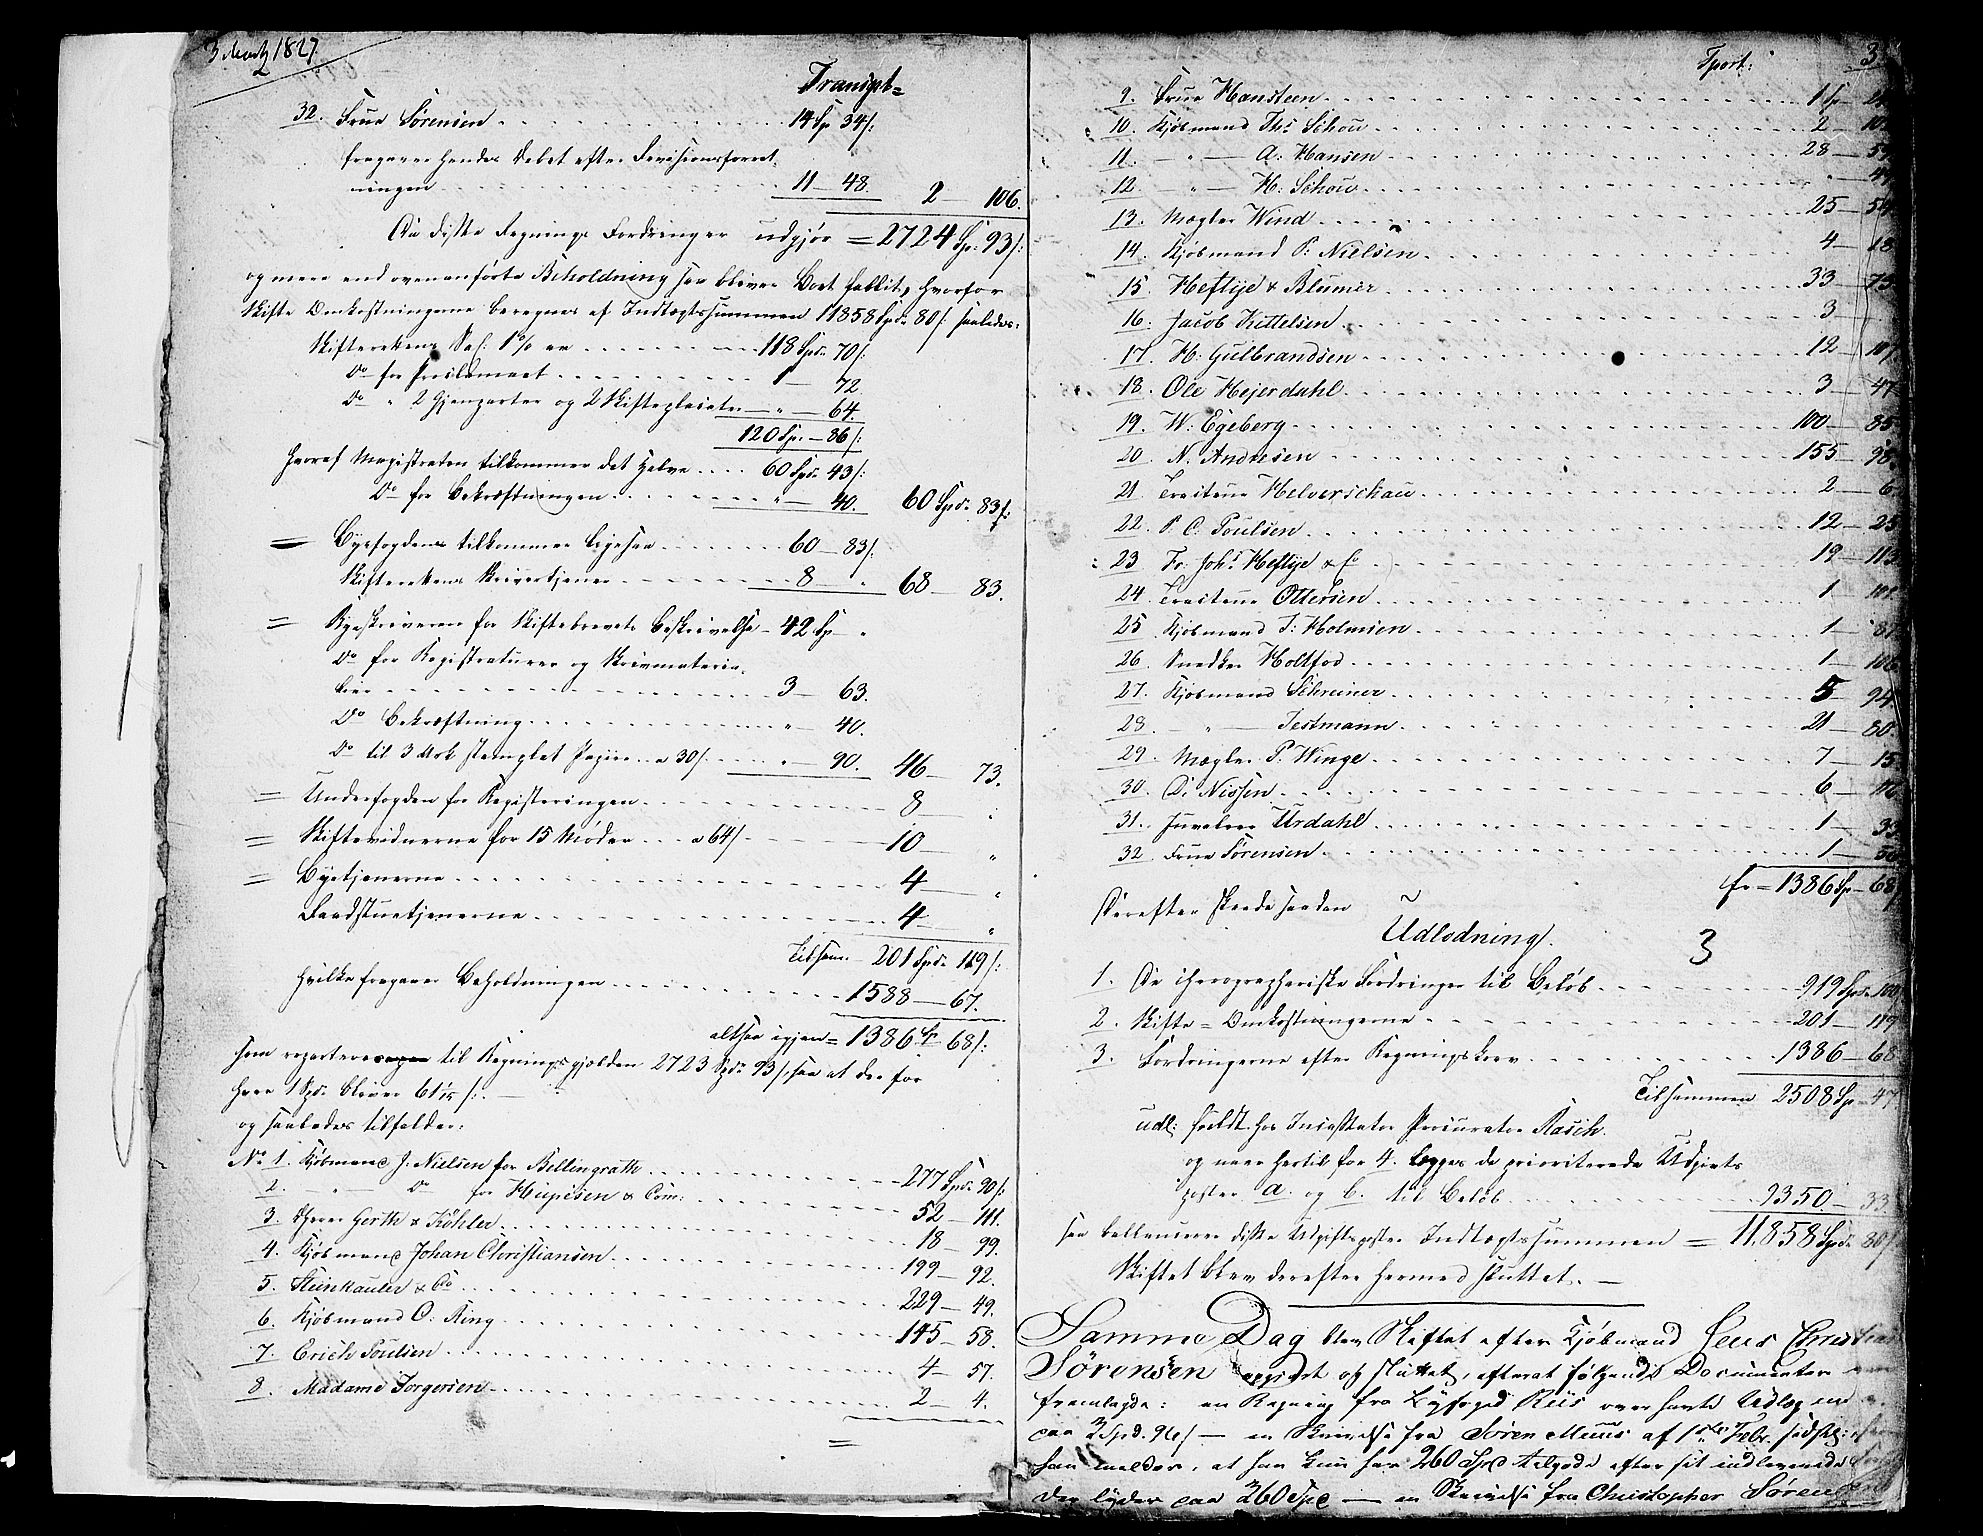 3 Martz 1827
Transpt=
32. Frue Sörensen 14 Sp 34 s:
fragaaer hendes Debet efter Revisionsforret
ningen 11 — 48. 2 — 106.
Da disse Regnings Fordringer udgjör = 2724 Sp: 93 s:
og mere end ovenanförte Beholdning saa bliver Boet fallit, hvorfor
Skifte Omkostningerne beregnes af Indtægtssummen 11858 Spd. 80 s. saaledes:
Skifterettens Sal: 1 % er 118 Spd. 70 s:
Do for Proclamaet 1 — 72.
Do " 2 Gjenparter og 2 Skifteplacater " — 64.
120 Sp: — 86 s:
Hvoraf Magistraten tilkommer det Halve 60 Spd. 43 s:
Do for Bekræftningen " — 40. 60 Spd. 83 s:
= Byefogden tilkommer ligesaa 60 — 83 s:
Skifterettens Skrivertjener 8 — . 68 — 83.
= Byeskriveren for Skiftebrevets Beskrivelse 42 Sp — "
Do for Registraturer og Skrivmateria-
lier 3 — 63.
Do Bekræftning " — 40.
Do til 3 Ark stemplet Papiir a 30 s. " — 90. 46 — 73.
= Underfogden for Registeringen 8 — "
= Skiftevidnerne for 15 Möder a 64 s 10 — "
= Byetjenerne 4 — "
Raadstuetjenerne 4 — "
Tilsam. 201 Spd. 119 s:
Hvilke fragaaer Beholdningen 1588 — 67.
altsaa igjen = 1386 Sp 68 s:
som reparteres til Regningsgjælden 2723 Spd. 93 s, saa at der for
hver 1 Spd. bliver 61 1/15 s. —
og saaledes tilfalder:
No 1. Kjöbmand J. Nielsen for Bellingrath 277 Spd. 90 s:
2. — " — Do for Hupeisen & Com: 52 — 111.
3. Dherr Gerth & Köhler 18 — 99.
4. Kjöbmand Johan Christiansen 199 — 92.
5. Steinkauler & Co 229 — 49.
6. Kjöbmand C: Ring 145 — 58.
7. Erich Poulsen 4 — 57.
8. Madame Torgersen 2 — 4.
=
Tport: 3
9. Frue Hansteen 1 Sp
10. Kjöbmand Ths Schou 2 —
11. — " — A: Hansen 28 —
12. — " — H: Schou " —
13. Mægler Wind 25 — 54
14. Kjöbmand P: Nielsen 4 — 18
15. Heftye & Blumer 33 — 73
16. Jacob Kittelsen 3 —
17. H: Gulbrandsen 12 — 107
18. Ole Hejerdahl 3 — 47
19. W: Egeberg 100 — 85
20. N. Andresen 155 — 98
21. Traiteur Helverschau 2 — 6
22. P. C. Poulsen 12 — 25
23. Fr. Johs Heftye & Co 19 — 113
24. Traiteur Ottersen 1 — 101
25. Kjöbmand J: Holmsen 1 — 81
26. Snedker Holtfod 1 — 106
27. Kjöbmand Schreiner 5 — 94
28. — " — Testmann 21 — 80
29. Mægler P. Winge 7 — 15
30. D: Nissen 6 — 16
31. Juveleer Urdahl 1 — 33
32. Frue Sörensen 1 —
fr = 1386 Sp — 68
Derefter skeede saadan
Udlodning. 3
1. De chirographariske Fordringer til Belöb 919 Spd. 100
2. Skifte = Omkostningerne 201 — 119
3. Fordringerne efter Regningskrav 1386 — 68
Tilsammen 2508 Sp — 47
udl: foreldt. hos Incassator Procurator Rasch.
og naar hertil for 4. lægges de prioriterede Udgivts
poster a. og b. til Belöb 9350 — 33
saa ballancerer disse Udgiftsposter Indtægtssummen = 11,858 Spd. 80 s
Skiftet blev derefter hermed sluttet. —
Samme Dag blev Skiftet efter Kjöbmand Jens Christian
Sörensen opgjort og sluttet, efterat fölgende Documenter
fremlagde: en Regning fra Byfoged Riis over havte Udlæg
paa 3 Spd. 96 s — en Skrivelse fra Sören Muus af 1ste Febr. sidstl:
han melder, at han kun har 260 Spd tilgode efter sit indleverede
der lyder paa 360 Spd — en Skrivelse fra Christopher Sörensen